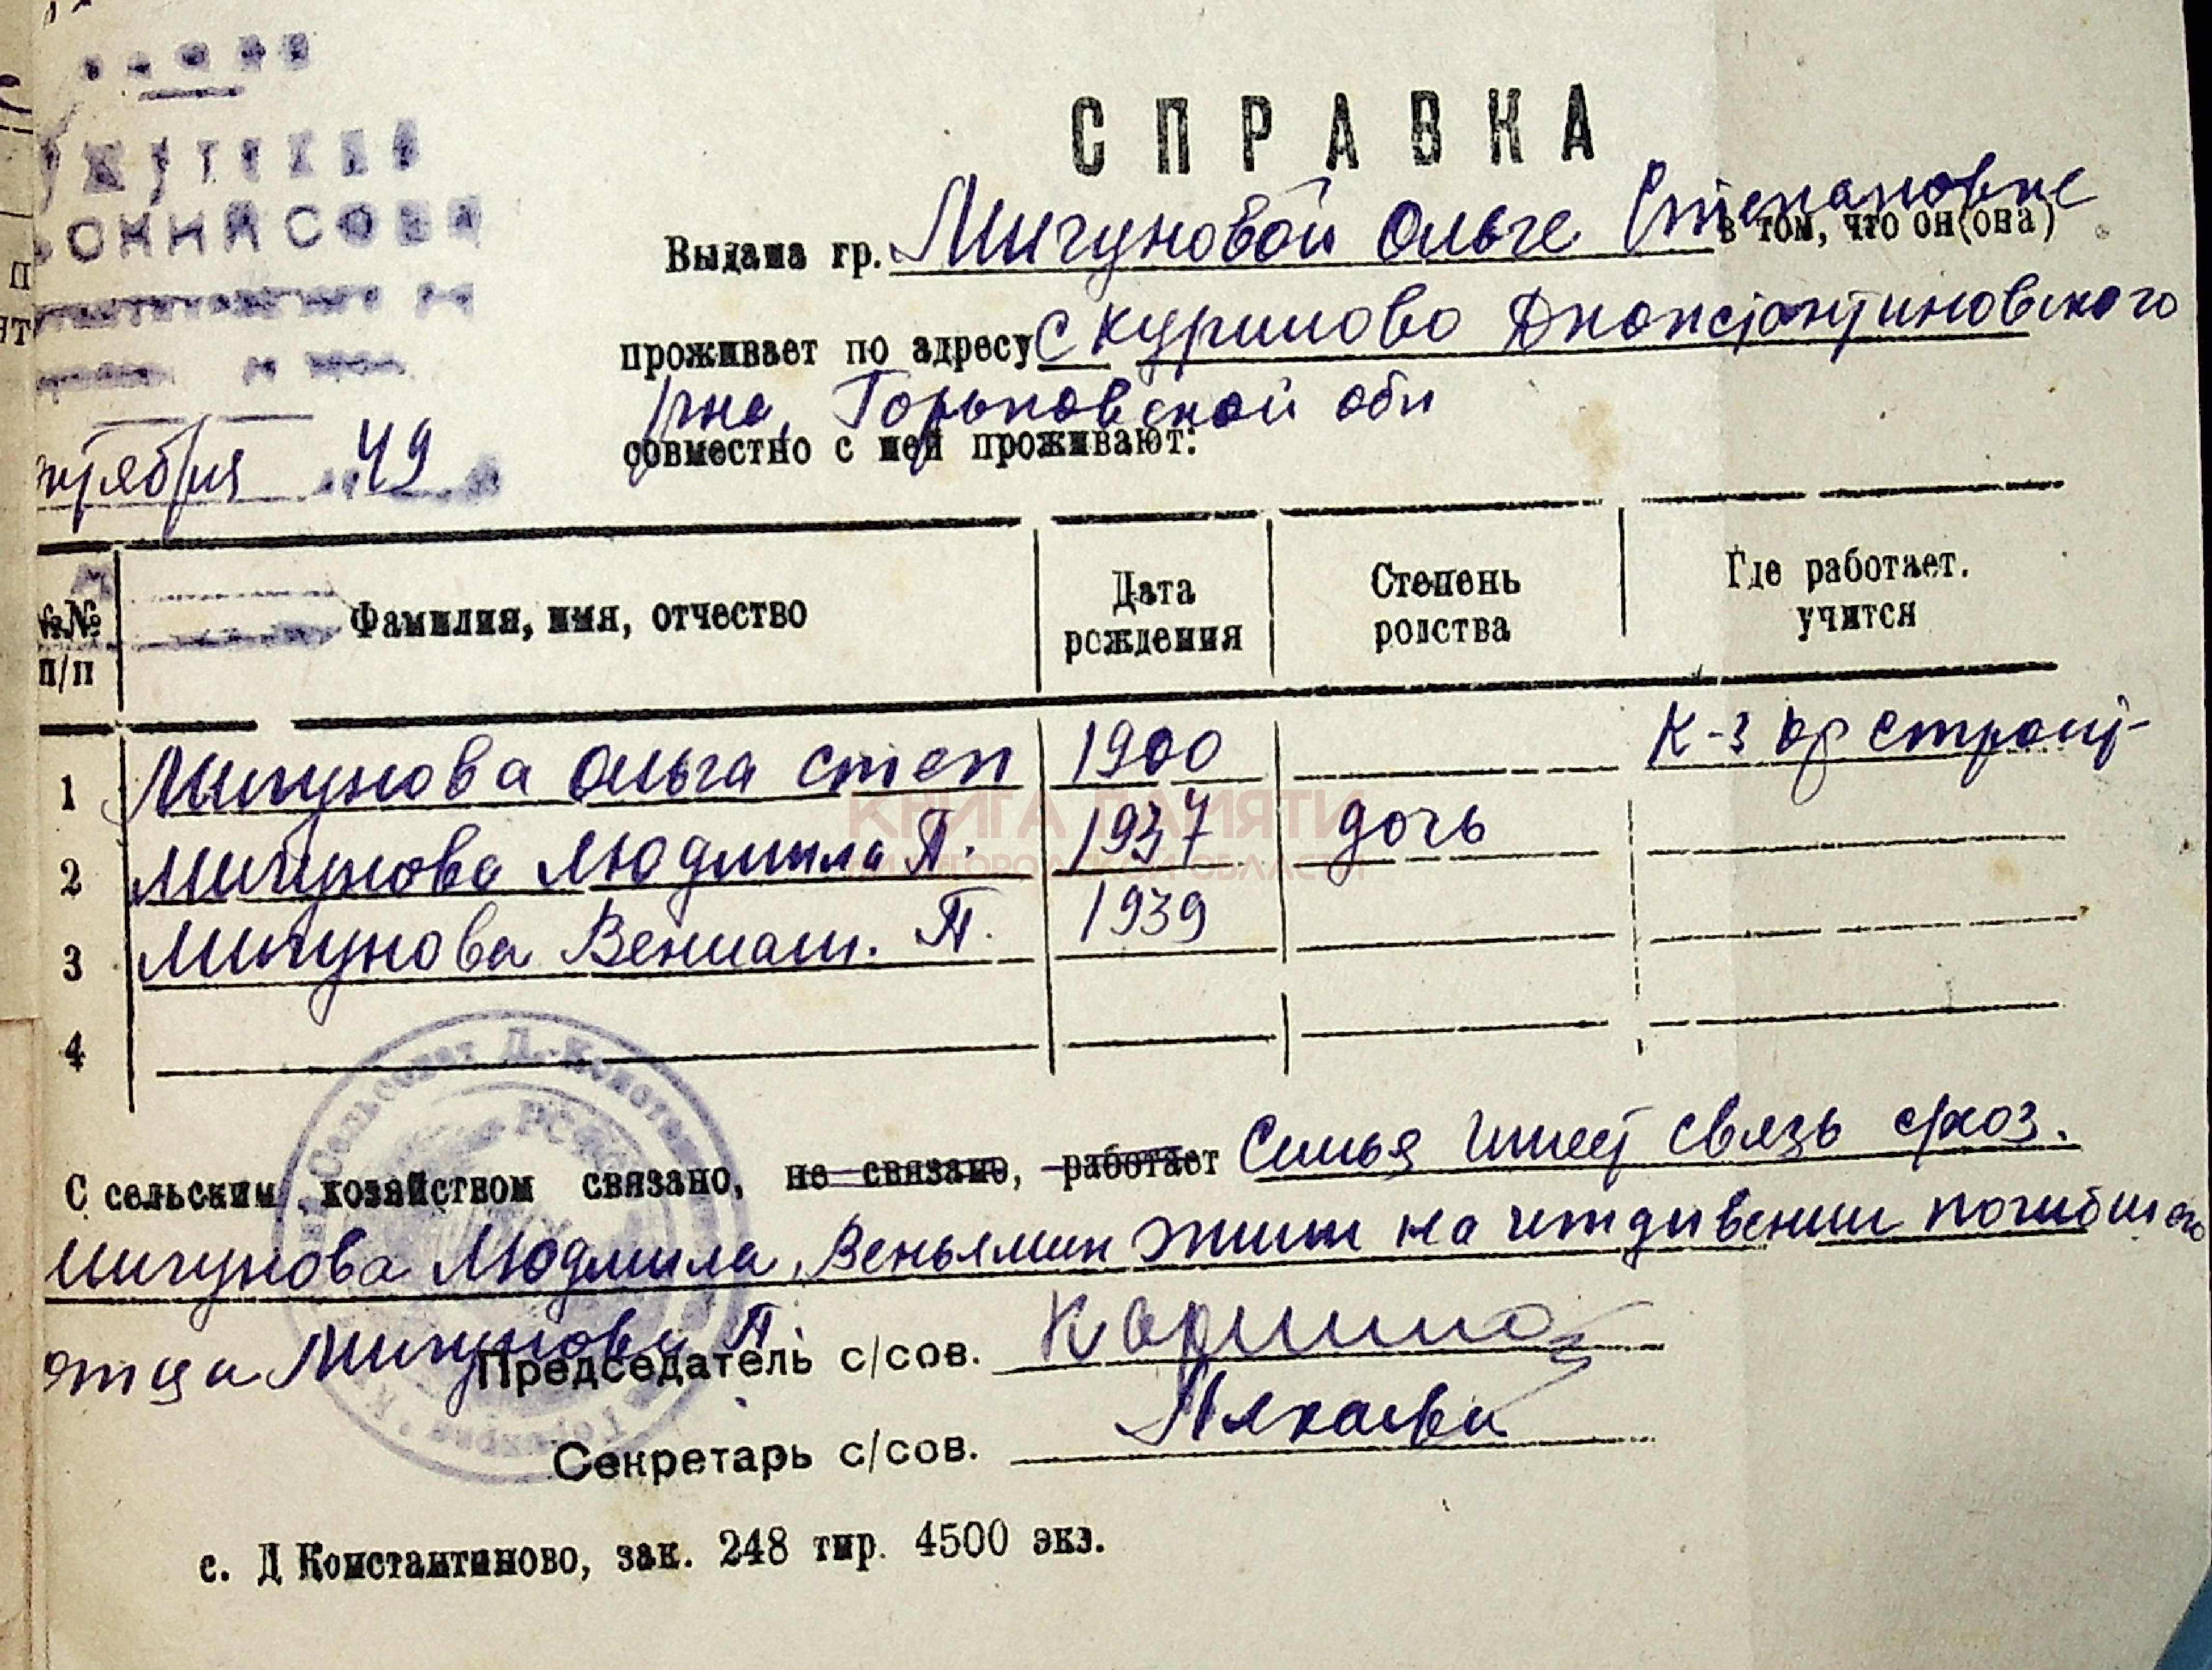 СПРАВКА
Выдана гр. Мигуновой Ольге Степановне в том, что он(она)
проживает по адресу с Курилово Дконстантиновского
рна, Горьковской обл
совместно с ней проживают:
ктября 49
№№ п/п Фамилия, имя, отчество Дата рождения Степень родства Где работает. учится
1 Мигунова Ольга Степ 1900 К-з
2 Мигунова Людмила П. 1937 дочь
3 Мигунова Вениам. П. 1939
4
КНИГА ПАМЯТИ
НИЖЕГОРОДСКОЙ ОБЛАСТИ
С сельским хозяйством связано, не связано, работает Семья имеет связь схоз.
Мигунова Людмила, Веньямин на иждивении погибшего
отца Мигунова П.
Председатель с/сов.
Секретарь с/сов.
с. Д Константиново, зак. 248 тир. 4500 экз.